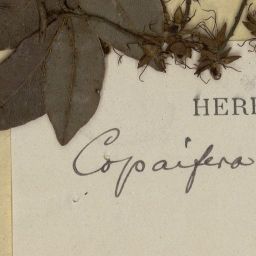 HER
Copaifera